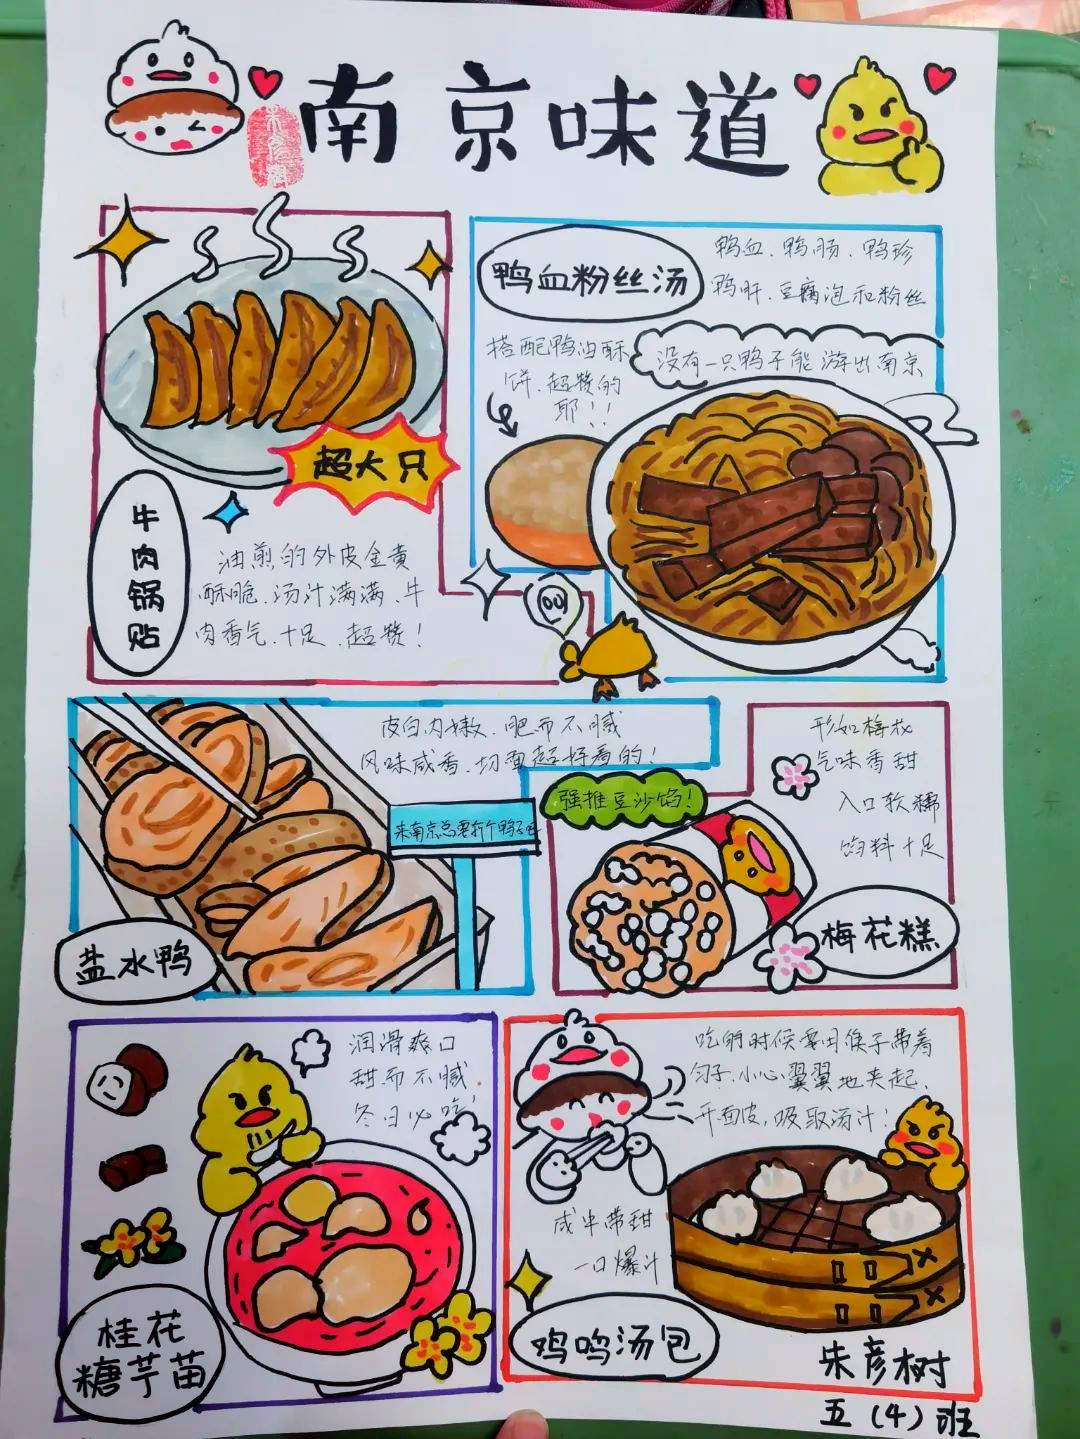 南京味道
超大只
牛肉锅贴
油煎的外皮金黄
酥脆、汤汁满满、牛
肉香气十足、超赞！
鸭血粉丝汤
鸭血、鸭肠、鸭珍
鸭肝、豆腐泡和粉丝
没有一只鸭子能游出南京
搭配鸭油酥
饼、超赞的
耶！！
皮白肉嫩、肥而不腻
风味咸香、切面超好看的！
来南京总要斩个鸭子吧
盐水鸭
强推豆沙馅！
形如梅花
气味香甜
入口软糯
馅料十足
梅花糕
润滑爽口
甜而不腻
冬日必吃！
桂花
糖芋苗
吃的时候要用筷子带着
勺子、小心翼翼地夹起、
开面皮，吸取汤汁！
咸中带甜
一口爆汁
鸡鸣汤包
朱彦树
五（4）班